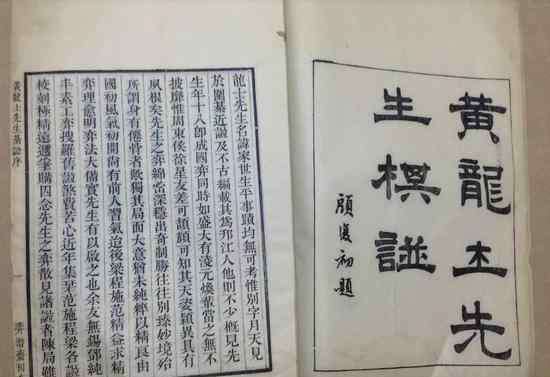 黃龍士先
生棋譜
顧復初題
龍士先生名諱家世生平事蹟均無可考惟別字月天見
於圍棊近譜及不古編載其為邗江人他則不少概見先
生年十八即成國弈同時如盛大有淩元煥輩當之無不
披靡惟周東侯徐星友差可頡頏可知其天姿穎異具有
夙根矣先生之弈綿密深穩出奇制勝往往別臻妙境殆
所謂身有僊骨者歟獨其局面大意猶未純粹以精良由
國初風氣初開尚有前人習氣迨後梁程施范精益求精
弈理愈明弈法大備實先生有以啟之也余友無錫鄧純
丰素工弈搜羅舊譜煞費苦心近年集范施程梁各譜
校刻極精購因念先生之弈散見諸譜者陳局雖
黃龍士先生棊譜序
弈潛齋刊